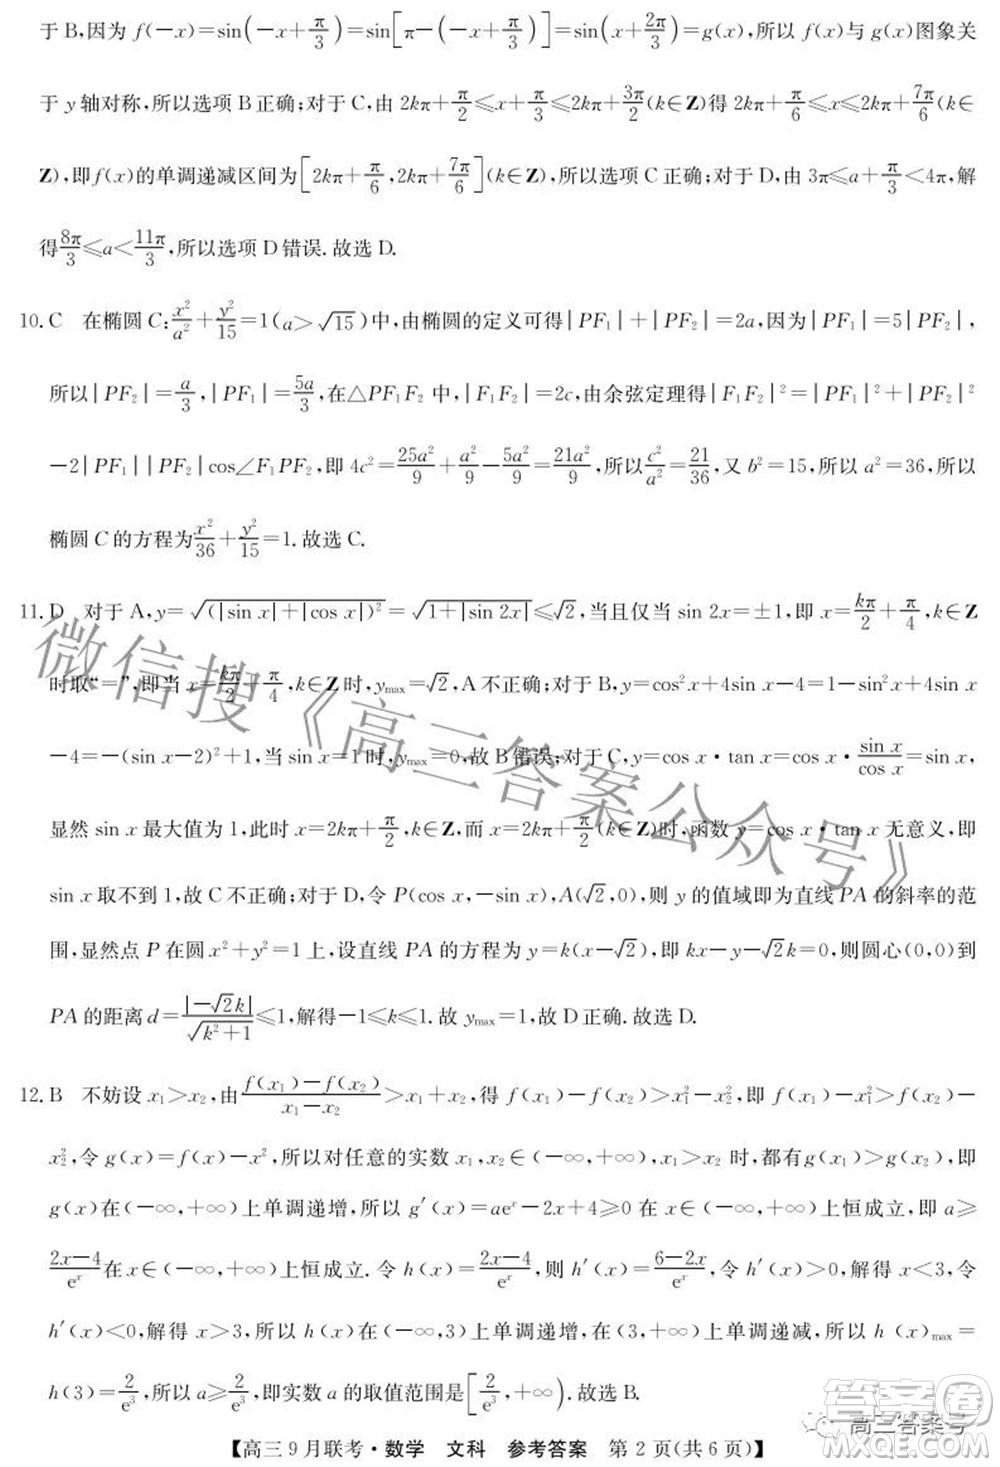 于 B,因为 f(−x)=sin(−x+π/3)=sin[π−(−x+π/3)]=sin(x+2π/3)=g(x),所以 f(x)与 g(x)图象关
于 y 轴对称,所以选项 B 正确;对于 C,由 2kπ+π/2≤x+π/3≤2kπ+3π/2(k∈Z)得 2kπ+π/6≤x≤2kπ+7π/6(k∈
Z),即 f(x)的单调递减区间为[2kπ+π/6,2kπ+7π/6](k∈Z),所以选项 C 正确;对于 D,由 3π≤a+π/3<4π,解
得8π/3≤a<11π/3,所以选项 D 错误.故选 D.
10. C 在椭圆 C:x²/a²+y²/15=1(a>√15)中,由椭圆的定义可得|PF₁|+|PF₂|=2a,因为|PF₁|=5|PF₂|,
所以|PF₂|=a/3,|PF₁|=5a/3,在△PF₁F₂ 中,|F₁F₂|=2c,由余弦定理得|F₁F₂|²=|PF₁|²+|PF₂|²
−2|PF₁||PF₂|cos∠F₁PF₂,即 4c²=25a²/9+a²/9−5a²/9=21a²/9,所以c²/a²=21/36,又 b²=15,所以 a²=36,所以
椭圆 C 的方程为x²/36+y²/15=1.故选 C.
11. D 对于 A,y=√(|sin x|+|cos x|)²=√1+|sin 2x|≤√2,当且仅当 sin 2x=±1,即 x=kπ/2+π/4,k∈Z
时取“=”,即当 x=kπ/2+π/4,k∈Z 时,yₘₐₓ=√2,A 不正确;对于 B,y=cos²x+4sin x−4=1−sin²x+4sin x
−4=−(sin x−2)²+1,当 sin x=1 时,yₘₐₓ=0,故 B 错误;对于 C,y=cos x·tan x=cos x·sin x/cos x=sin x,
显然 sin x 最大值为 1,此时 x=2kπ+π/2,k∈Z,而 x=2kπ+π/2(k∈Z)时,函数 y=cos x·tan x 无意义,即
sin x 取不到 1,故 C 不正确;对于 D,令 P(cos x,−sin x),A(√2,0),则 y 的值域即为直线 PA 的斜率的范
围,显然点 P 在圆 x²+y²=1 上,设直线 PA 的方程为 y=k(x−√2),即 kx−y−√2k=0,则圆心(0,0)到
PA 的距离 d=|−√2k|/√(k²+1)≤1,解得−1≤k≤1.故 yₘₐₓ=1,故 D 正确.故选 D.
12. B 不妨设 x₁>x₂,由f(x₁)−f(x₂)/x₁−x₂>x₁+x₂,得 f(x₁)−f(x₂)>x₁²−x₂²,即 f(x₁)−x₁²>f(x₂)−
x₂²,令 g(x)=f(x)−x²,所以对任意的实数 x₁,x₂∈(−∞,+∞),x₁>x₂ 时,都有g(x₁)>g(x₂),即
g(x)在(−∞,+∞)上单调递增,所以 g′(x)=aeˣ−2x+4≥0 在(−∞,+∞)上恒成立,即 a≥
2x−4/eˣ在 x∈(−∞,+∞)上恒成立.令 h(x)=2x−4/eˣ,则 h′(x)=6−2x/eˣ,令 h′(x)>0,解得 x<3,令
h′(x)<0,解得 x>3,所以 h(x)在(−∞,3)上单调递增,在(3,+∞)上单调递减,所以 h(x)ₘₐₓ=
h(3)=2/e³,所以 a≥2/e³,即实数 a 的取值范围是[2/e³,+∞).故选 B.
【高三 9 月联考·数学 文科 参考答案 第 2 页(共 6 页)】
微信搜《高三答案公众号》
高三答案号
答案圈
MXQE.COM